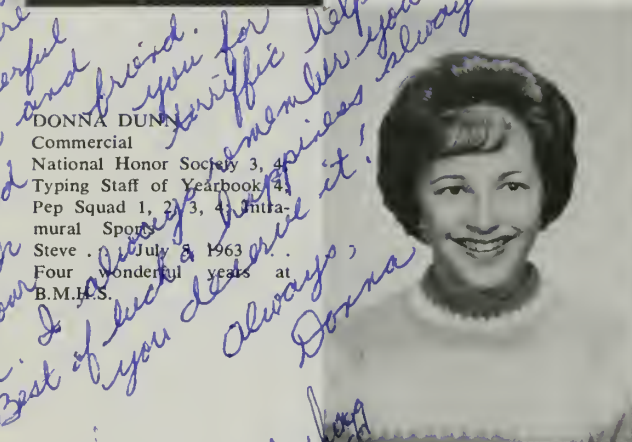 DONNA DUNN
Commercial
National Honor Society 3, 4,
Typing Staff of Yearbook 4,
Pep Squad 1, 2, 3, 4, Intra-
mural Sports
Steve . . July 5, 1963 . .
Four wonderful years at
B.M.H.S.
and friend.
you for
terrific help
I always remember you
Best of luck & happiness always
you deserve it!
Always,
Donna